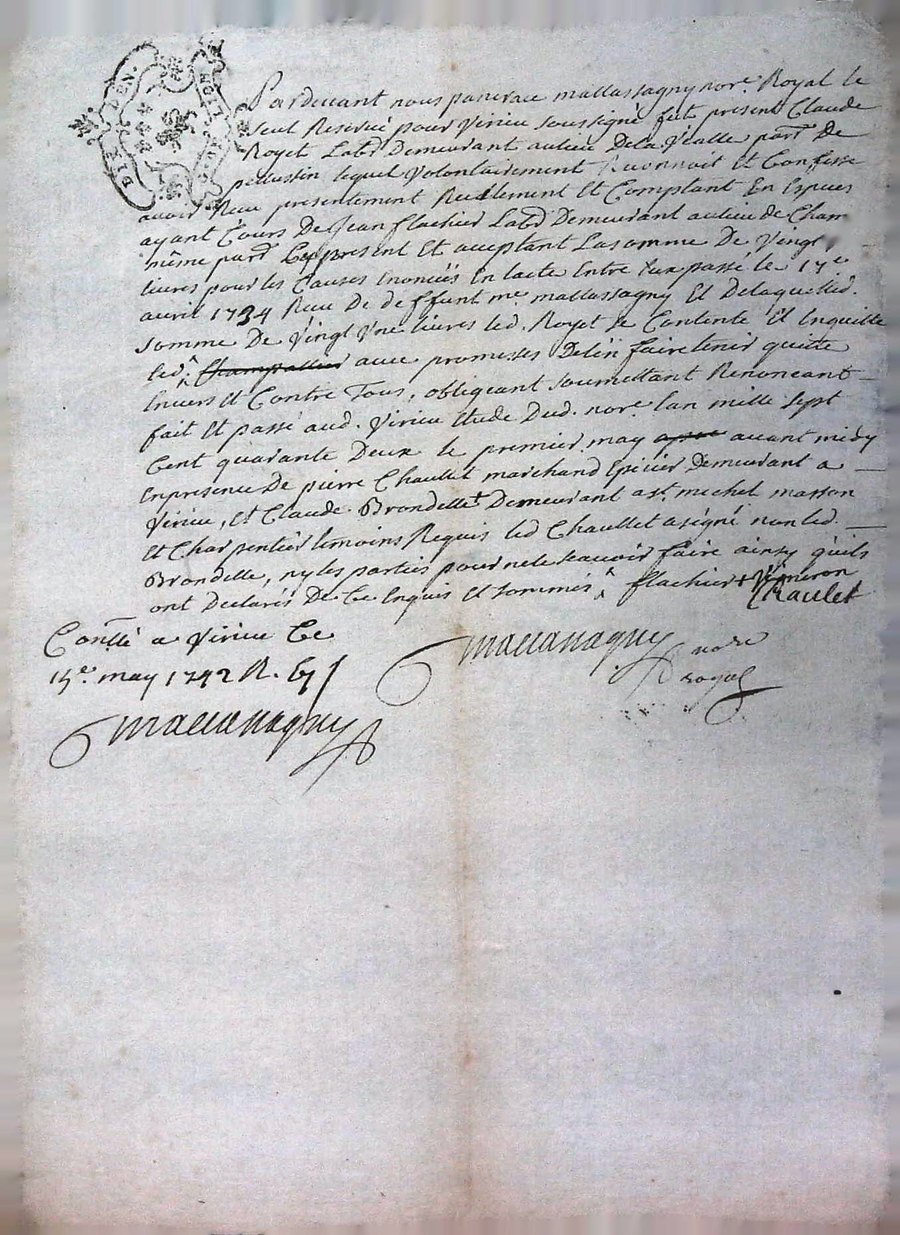 DIX DEN. GEN. LION
Pardevant nous pancrace mallassagny nore. Royal le
seul Reservé pour Virieu soussigné fut present Claude
Royet Labr Demeurant au lieu De la Vialle parr. De
pelussin lequel Volontairement Reconnoit Et Confesse
avoir Receu presentement Reellement Et Comptant En Especes
ayant Cours De Jean flachier Labr Demeurant au lieu de Cham
même parr. Cy present Et acceptant La somme De Vingt
livres pour les Causes Enoncées En lacte Entre Eux passé le 17e
avril 1734 Receu De deffunt me mallassagny Et De laquelle d.
somme De Vingt Une livres led. Royet se Contente Et En quitte
led. ^ Champallier avec promesses De l'En faire tenir quitte
Envers Et Contre Tous, obligeant soumettant Renonceant
fait Et passé aud. Virieu Etude Dud. nore. lan mille sept
Cent quarante Deux le premier may apres avant midy
En presence De pierre Chaullet marchand Epicier Demeurant a
Virieu, Et Claude Brondelle Demeurant a st. michel masson
Et Charpentier temoins Requis led Chaullet a signé non led.
Brondelle, ny les parties pour ne le scavoir faire ainsy qu'ils
ont Declarés De Ce Enquis Et sommés ^ flachier + Vigneron
Chaulet
Conllé a Virieu Ce
15e. may 1742 R.
Mallassagny nore
royal
Mallassagny